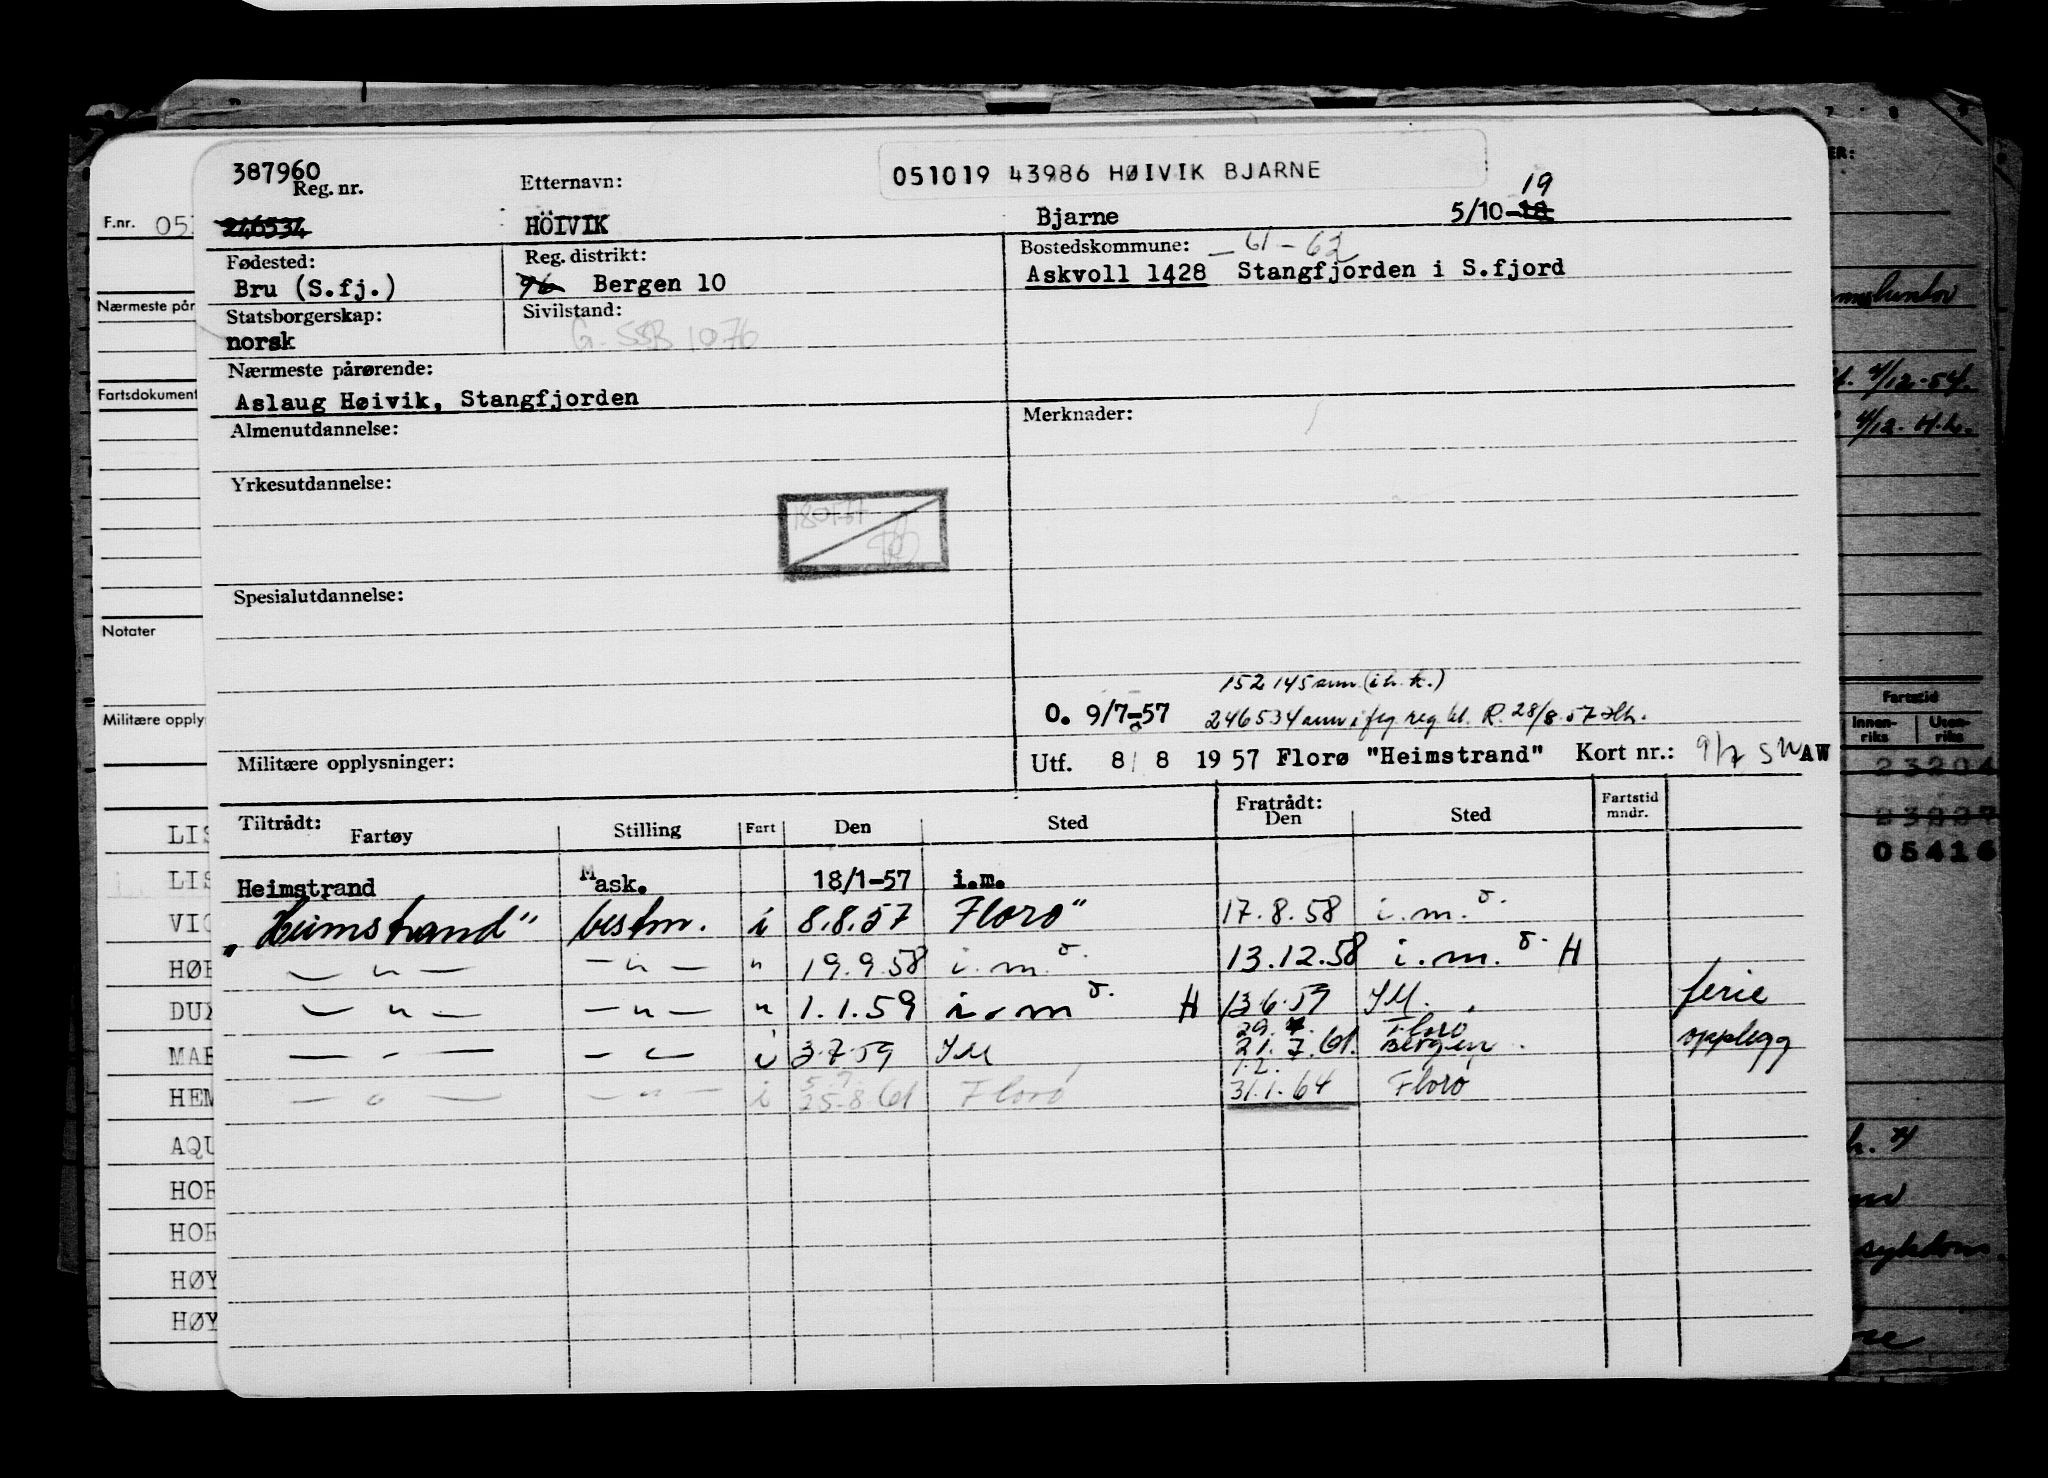 387960
Reg. nr.
Etternavn:
051019 43986 HØIVIK BJARNE
19
F.nr. 05
246534
HÖIVIK
Bjarne
5/10-18
Fødested:
Reg. distrikt:
Bostedskommune: — 61 - 62
Bru (S.fj.)
96 Bergen 10
Askvoll 1428 Stangfjorden i S.fjord
Nærmeste pår
Statsborgerskap:
Sivilstand:
norsk
G. SSB 1076
Nærmeste pårørende:
Fartsdokument
Aslaug Høivik, Stangfjorden
Merknader:
Almenutdannelse:
4/12-54.
4/12. H.L.
Yrkesutdannelse:
Spesialutdannelse:
Notater
152 145 ann (i h. k.)
O. 9/7-57 246534 ann i flg reg kl. R. 28/8.57
Militære opply
Militære opplysninger:
Utf. 8/8 1957 Florø "Heimstrand" Kort nr.: 9/7 SW AW
Fartstid
Innen-riks
Uten-riks
23204
23227
05416
Tiltrådt:
Fartøy
Stilling
Fart
Den
Sted
Fratrådt:
Den
Sted
Fartstid mndr.
LIS
Heimstrand Mask. 18/1-57 i.m.
LIS
VIC
"Heimstrand" bestm. i 8.8.57 Florø" 17.8.58 i.m.o.
HØE
— " — — " — " 19.9.58 i.m.o. 13.12.58 i.m.o. H
DUX
— " — — " — " 1.1.59 i.m.o. H 13.6.59 I.M. ferie
29. 7. Florø
MAR
— " — — " — i 3.7.59 I.M 21.7.61. Bergen. opplegg
5.9. 1.2.
HEM
— " — — " — i 25.8.61 Florø 31.1.64 Florø
AQU
HOR
HOR
sykdom.
HØY
HØY